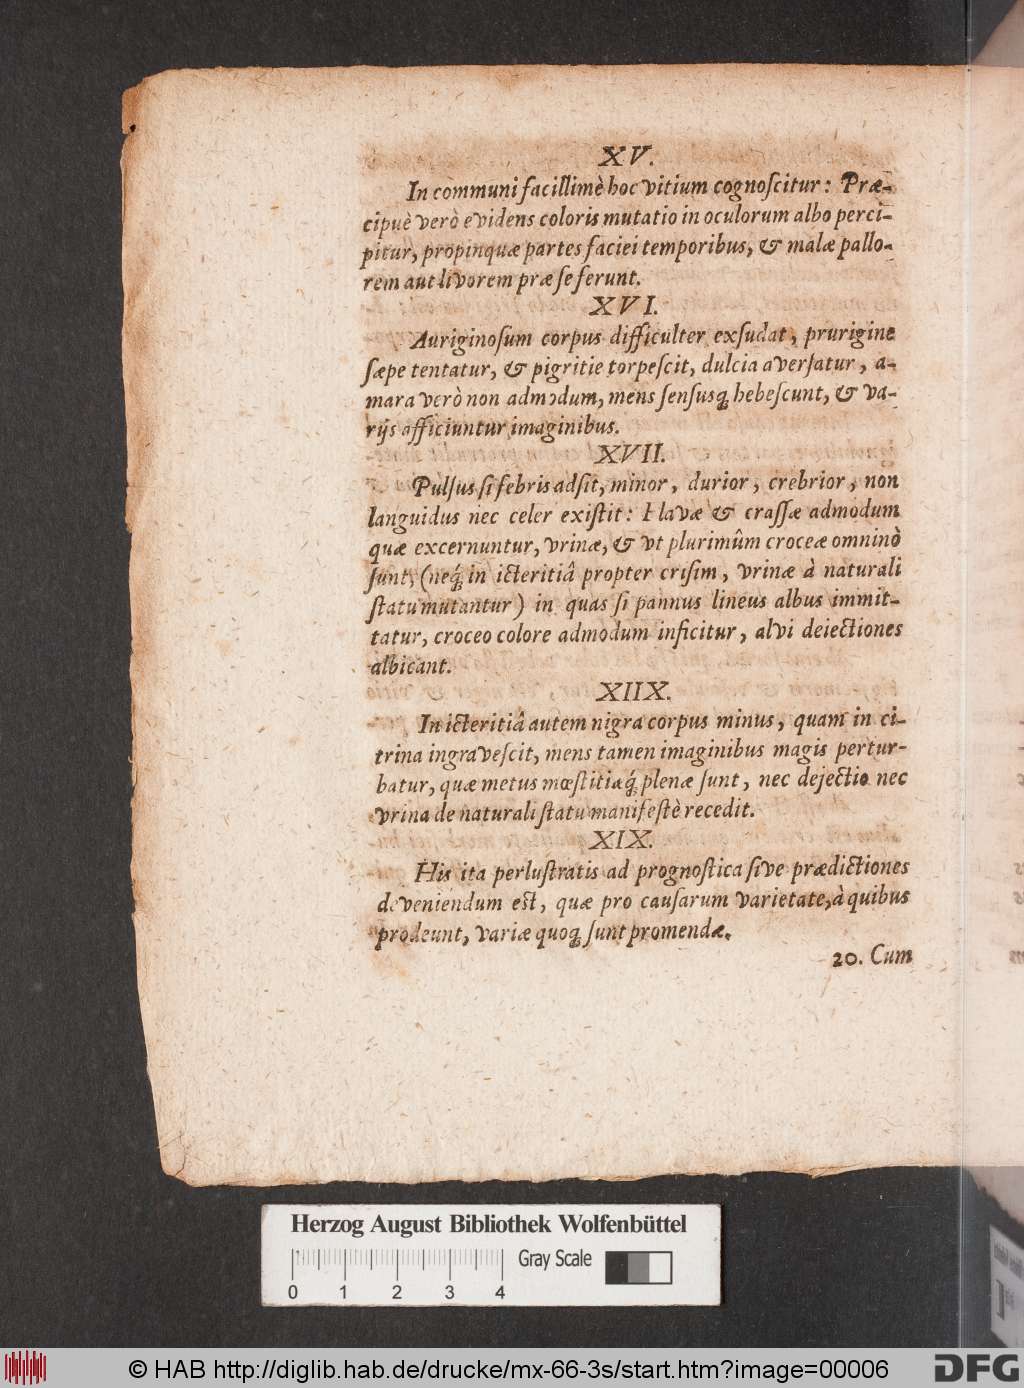 XV.
In communi facillimè hoc vitium cognoſcitur: Præ-
cipuè verò evidens coloris mutatio in oculorum albo perci-
pitur, propinquæ partes faciei temporibus, & malæ pallo-
rem aut livorem præ ſe ferunt.
XVI.
Auriginoſum corpus difficulter exſudat, prurigine
ſæpe tentatur, & pigritie torpeſcit, dulcia averſatur, a-
mara verò non admodum, mens ſenſusq́ hebeſcunt, & va-
rijs afficiuntur imaginibus.
XVII.
Pulſus ſi febris adſit, minor, durior, crebrior, non
languidus nec celer exiſtit: Flavæ & craſſæ admodum
quæ excernuntur, vrinæ, & vt plurimûm croceæ omninò
ſunt, (neq́ in icteritiâ propter criſim, vrinæ à naturali
ſtatu mutantur) in quas ſi pannus lineus albus immit-
tatur, croceo colore admodum inficitur, alvi deiectiones
albicant.
XIIX.
In icteritiâ autem nigra corpus minus, quam in ci-
trina ingraveſcit, mens tamen imaginibus magis pertur-
batur, quæ metus mœſtitiaq́ plenæ ſunt, nec dejectio nec
vrina de naturali ſtatu manifeſtè recedit.
XIX.
His ita perluſtratis ad prognoſtica ſive prædictiones
deveniendum eſt, quæ pro cauſarum varietate, à quibus
prodeunt, variæ quoq́ ſunt promendæ.
20. Cum
Herzog August Bibliothek Wolfenbüttel
Gray Scale
0 1 2 3 4
© HAB http://diglib.hab.de/drucke/mx-66-3s/start.htm?image=00006
DFG